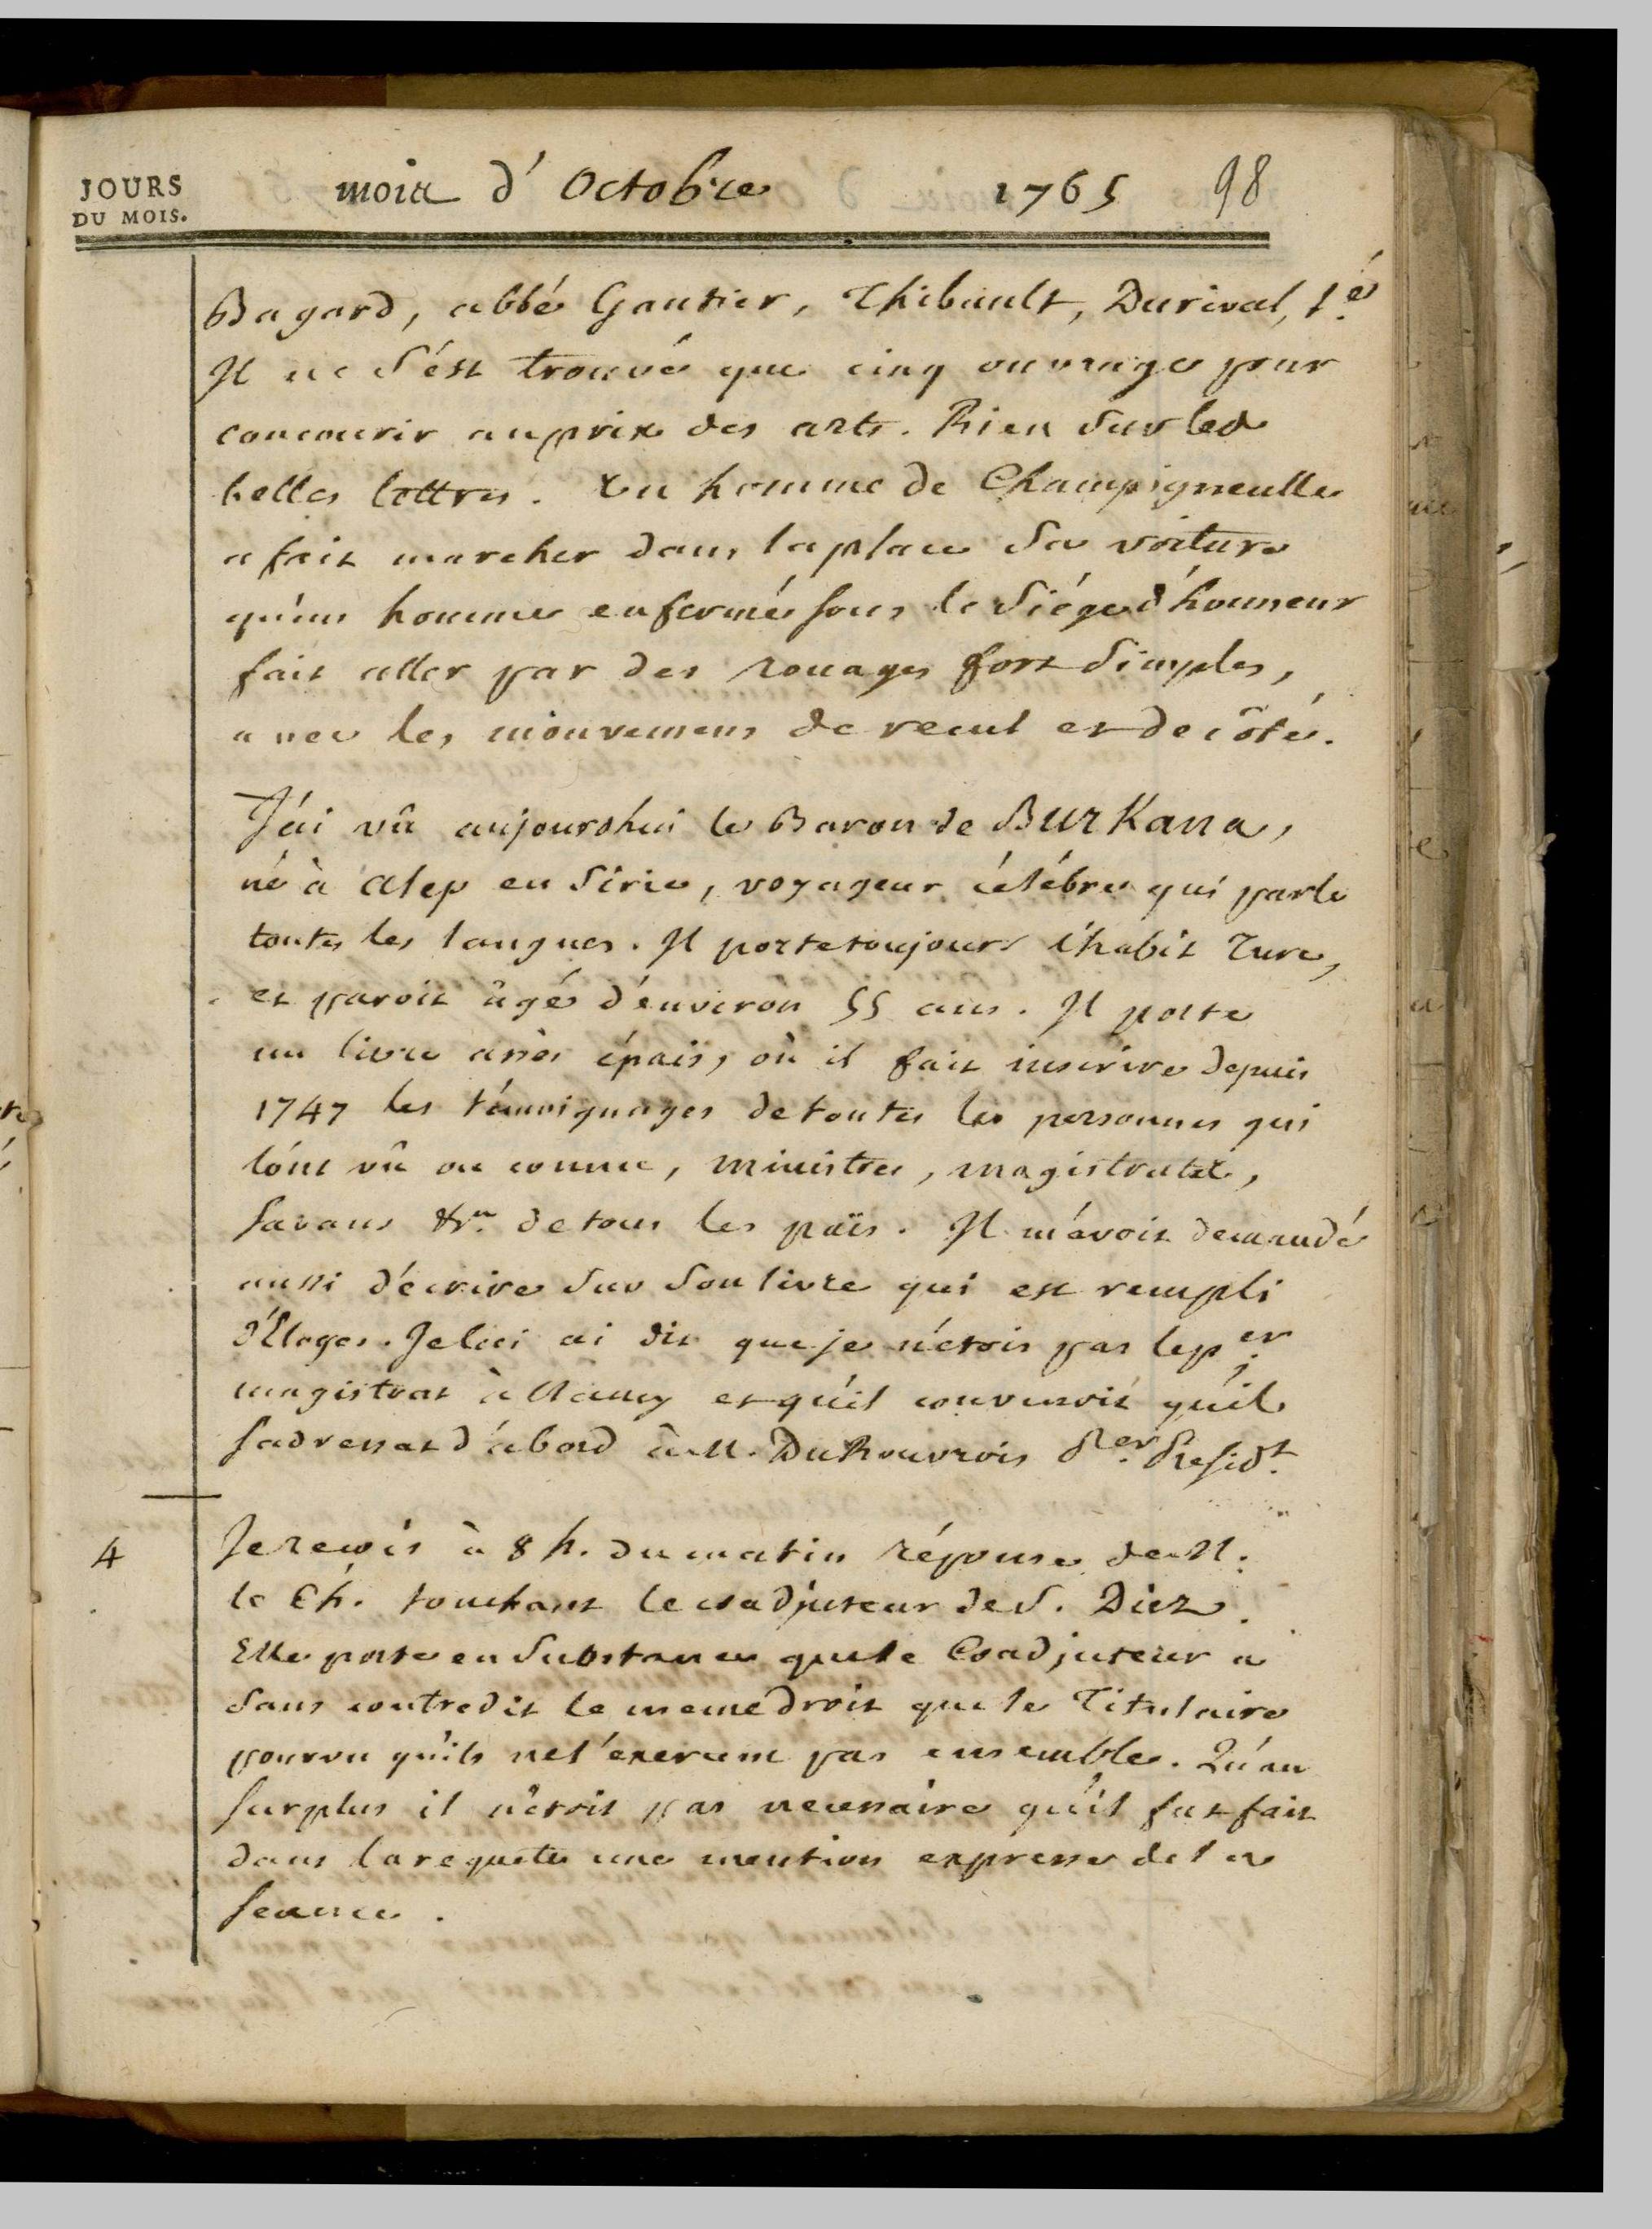 JOURS
DU MOIS.
mois d'Octobre 1765 98
Bagard, abbé Gautier, Thibault, Durival, s.é
Il ne s'est trouvé que cinq ouvrages pour
concourir au prix des arts. Rien sur les
belles lettres. Un homme de Champigneulle
a fait marcher dans la place sa voiture
qu'un homme enfermé sous le siége d'honneur
fait aller par des rouages fort simples,
avec les mouvemens de recul et de côté.
J'ai vû aujourdhui le Baron de Burkana,
né à Alep en Sirie, voyageur célébre qui parle
toutes les langues. Il porte toujours l'habit Turc,
et paroit âgé d'environ 55 ans. Il porte
un livre assès épais, où il fait inscrire depuis
1747 les témoignages de toutes les personnes qui
l'ont vû ou connu, ministres, magistrats,
savans &c.a de tous les païs. Il m'avoit demandé
aussi d'écrire sur son livre qui est rempli
d'Eloges. Je lui ai dit que je n'étois pas le p.er
magistrat à Nancy et qu'il convenoit qu'il
s'adressat d'abord à M. DuRouvrois P.er Presid.t
4 Je recois à 8 h. du matin réponse de M.
le Ch. touchant le coadjuteur de S. Diez.
Elle porte en substance que le Coadjuteur a
sans contredit le meme droit que le Titulaire
pourvu qu'ils ne l'exercent pas ensemble. Qu'au
surplus il n'étoit pas necessaire qu'il fut fait
dans la requête une mention expresse de la
seance.